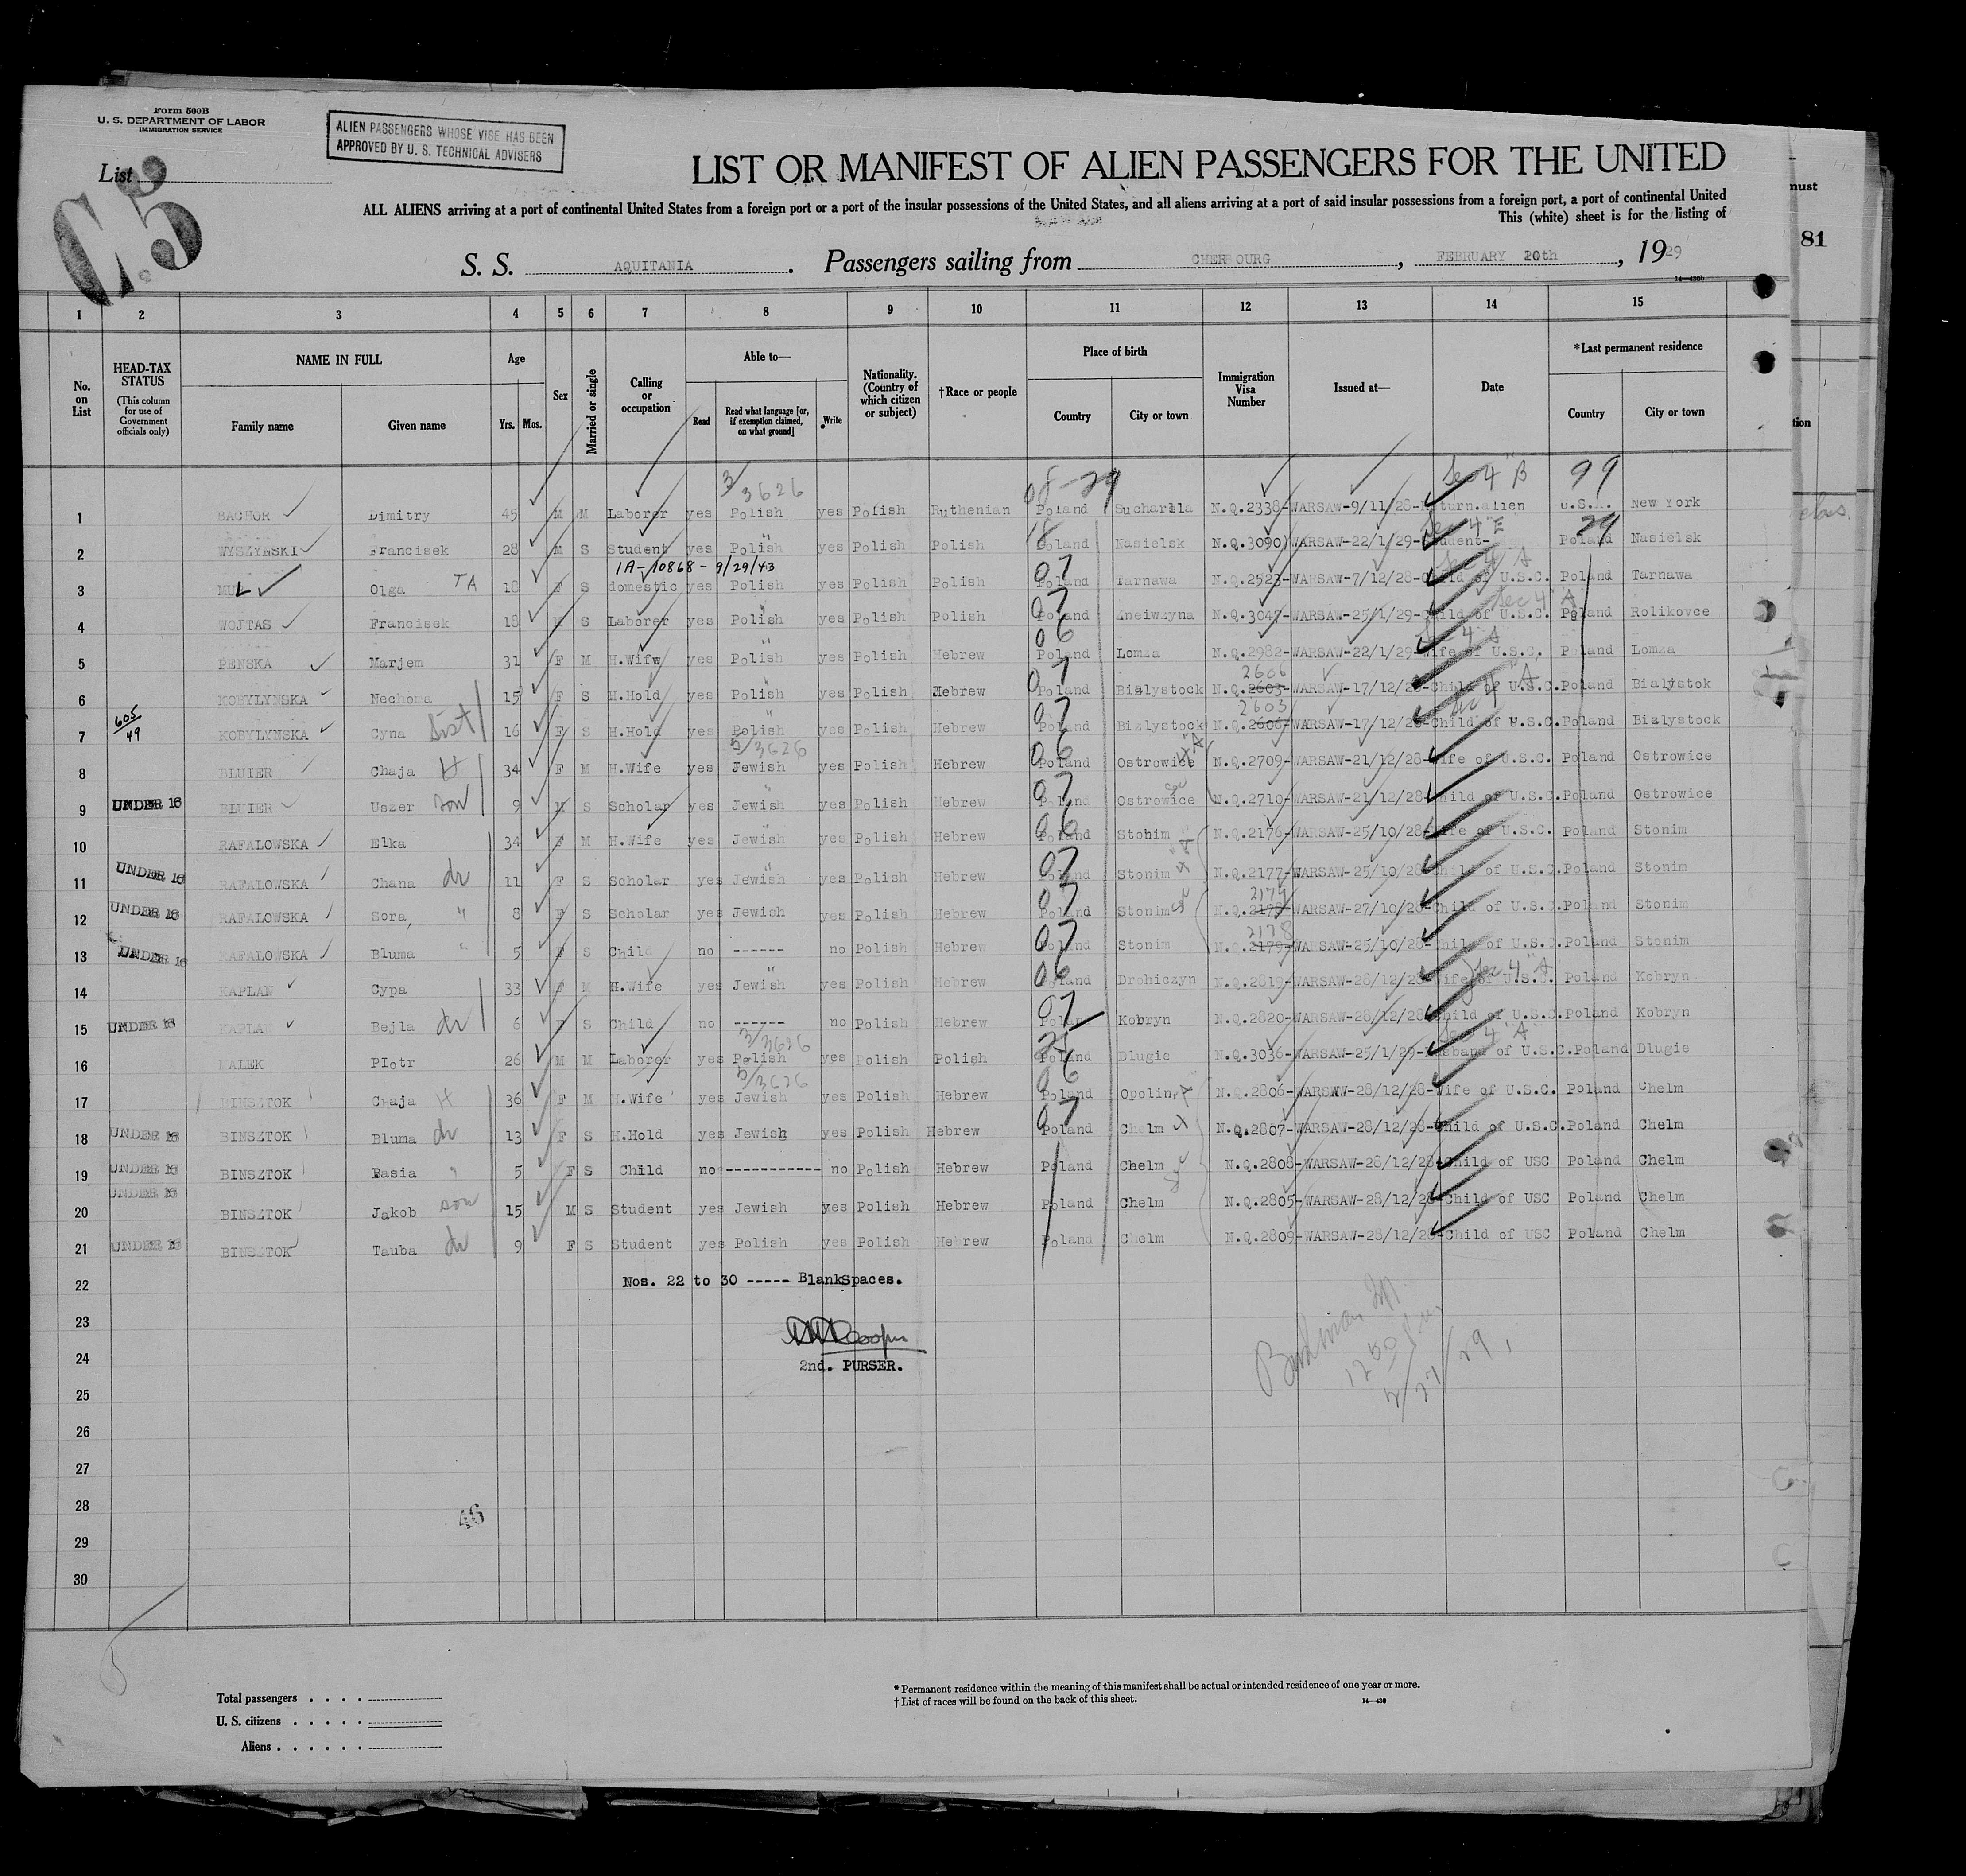 Form 500B
U. S. DEPARTMENT OF LABOR
IMMIGRATION SERVICE
ALIEN PASSENGERS WHOSE VISE HAS BEEN
APPROVED BY U. S. TECHNICAL ADVISERS
List
C.5
LIST OR MANIFEST OF ALIEN PASSENGERS FOR THE UNITED
ALL ALIENS arriving at a port of continental United States from a foreign port or a port of the insular possessions of the United States, and all aliens arriving at a port of said insular possessions from a foreign port, a port of continental United
This (white) sheet is for the listing of
must
81
S. S. AQUITANIA. Passengers sailing from CHERBOURG, FEBRUARY 20th, 1929
14—430b
1 2 3 4 5 6 7 8 9 10 11 12 13 14 15
No. on List
HEAD-TAX STATUS (This column for use of Government officials only)
NAME IN FULL Family name Given name
Age Yrs. Mos.
Sex
Married or single
Calling or occupation
Able to— Read Read what language [or, if exemption claimed, on what ground] Write
Nationality. (Country of which citizen or subject)
†Race or people
Place of birth Country City or town
Immigration Visa Number
Issued at—
Date
*Last permanent residence Country City or town
3/3626 08-29 Sec 4 "B" 99
1 BACHOR Dimitry 45 M M Laborer yes Polish yes Polish Ruthenian Poland N.Q.2338-WARSAW-9/11/28-Return.alien U.S.A. New York
18 Sec 4 "E" 29
2 WYSZYNSKI Francisek 28 M S Student yes Polish yes Polish Polish Poland Nasielsk N.Q.3090)WARSAW-22/1/29-Student- Poland Nasielsk
1A-10868-9/29/43
3 MUL Olga TA 18 F S domestic yes Polish yes Polish Polish 07 Poland Tarnawa N.Q.2523-WARSAW-7/12/28-Child of U.S.C. Poland Tarnawa
4 WOJTAS Francisek 18 S Laborer yes Polish yes Polish Polish 07 Poland Kneiwzyna N.Q.3047-WARSAW-25/1/29-Child of U.S.C. Poland Rolikovce
5 PENSKA Marjem 31 F M H.Wife yes Polish yes Polish Hebrew 06 Poland Lomza N.Q.2982-WARSAW-22/1/29-Wife of U.S.C. Poland Lomza
2606
6 KOBYLYNSKA Nechoma 15 F S H.Hold yes Polish yes Polish Hebrew 07 Poland Bialystock N.Q.2603-WARSAW-17/12/28-Child of U.S.C. Poland Bialystok
605/49 2603
7 KOBYLYNSKA Cyna Sist 16 F S H.Hold yes Polish yes Polish Hebrew 07 Poland Bialystock N.Q.2606-WARSAW-17/12/28-Child of U.S.C. Poland Bialystock
3/3626
8 BLUIER Chaja 34 F M H.Wife yes Jewish yes Polish Hebrew 06 Poland Ostrowice N.Q.2709-WARSAW-21/12/28-Wife of U.S.C. Poland Ostrowice
9 UNDER 16 BLUIER Uszer son 9 M S Scholar yes Jewish yes Polish Hebrew 07 Poland Ostrowice N.Q.2710-WARSAW-21/12/28-Child of U.S.C. Poland Ostrowice
10 RAFALOWSKA Elka 34 F M H.Wife yes Jewish yes Polish Hebrew 06 Poland Stonim N.Q.2176-WARSAW-25/10/28-Wife of U.S.C. Poland Stonim
11 UNDER 16 RAFALOWSKA Chana dr 11 F S Scholar yes Jewish yes Polish Hebrew 07 Poland Stonim N.Q.2177-WARSAW-25/10/28-Child of U.S.C. Poland Stonim
2179
12 UNDER 16 RAFALOWSKA Sora, " 8 F S Scholar yes Jewish yes Polish Hebrew 07 Poland Stonim N.Q.2178-WARSAW-27/10/28-Child of U.S.C. Poland Stonim
2178
13 UNDER 16 RAFALOWSKA Bluma " 5 F S Child no ------ no Polish Hebrew 07 Poland Stonim N.Q.2179-WARSAW-25/10/28-Child of U.S.C. Poland Stonim
14 KAPLAN Cypa 33 F M H.Wife yes Jewish yes Polish Hebrew 06 Poland Drohiczyn N.Q.2819-WARSAW-28/12/28-Wife of U.S.C. Poland Kobryn
15 UNDER 16 KAPLAN Bejla dr 6 F S Child no ------ no Polish Hebrew 07 Poland Kobryn N.Q.2820-WARSAW-28/12/28-Child of U.S.C. Poland Kobryn
3/3626 Sec 4 "A"
16 MALEK PIotr 26 M M Laborer yes Polish yes Polish Polish Poland Dlugie N.Q.3036-WARSAW-25/1/29-Husband of U.S.C. Poland Dlugie
3/3626
17 BINSZTOK Chaja 36 F M H.Wife yes Jewish yes Polish Hebrew 06 Poland Opolin N.Q.2806-WARSAW-28/12/28-Wife of U.S.C. Poland Chelm
18 UNDER 16 BINSZTOK Bluma dr 13 F S H.Hold yes Jewish yes Polish Hebrew 07 Poland Chelm N.Q.2807-WARSAW-28/12/28-Child of U.S.C. Poland Chelm
19 UNDER 16 BINSZTOK Basia 5 F S Child no------------ no Polish Hebrew Poland Chelm N.Q.2808-WARSAW-28/12/28-Child of USC Poland Chelm
20 UNDER 16 BINSZTOK Jakob son 15 M S Student yes Jewish yes Polish Hebrew Poland Chelm N.Q.2805-WARSAW-28/12/28-Child of USC Poland Chelm
21 UNDER 16 BINSZTOK Tauba dr 9 F S Student yes Polish yes Polish Hebrew Poland Chelm N.Q.2809-WARSAW-28/12/28-Child of USC Poland Chelm
22 Nos. 22 to 30 ----- BlankSpaces.
23
24 2nd. PURSER.
25
26
27
28 46
29
30
Total passengers . . . .
U.S. citizens . . . . .
Aliens . . . . . .
* Permanent residence within the meaning of this manifest shall be actual or intended residence of one year or more.
† List of races will be found on the back of this sheet.
14—430